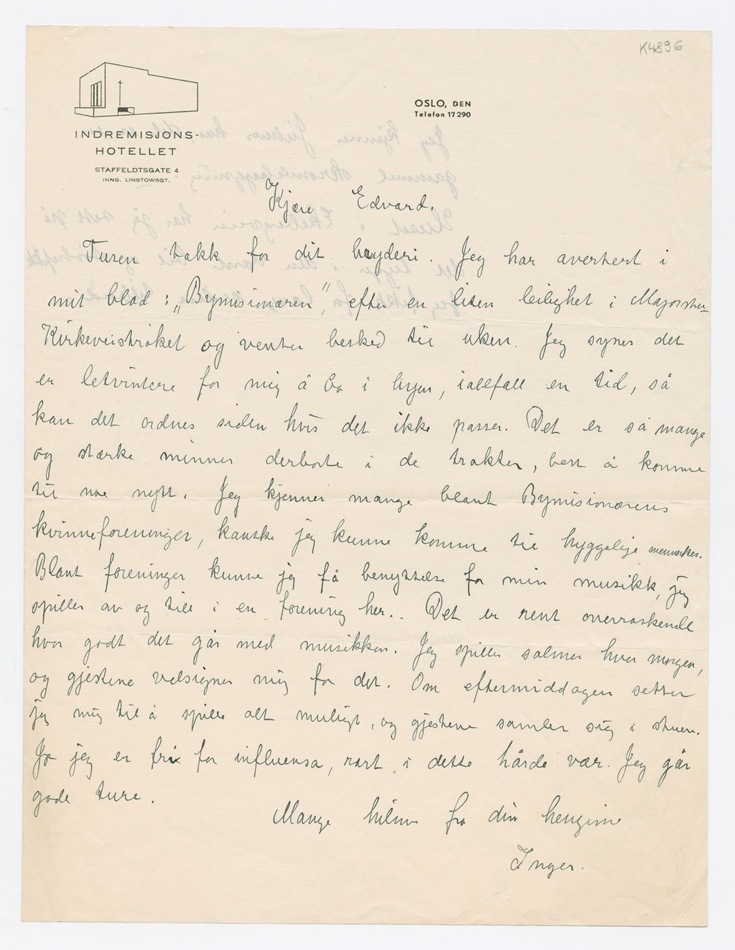 K4896
INDREMISJONS-
HOTELLET
STAFFELDTSGATE 4
INNG. LINSTOWSGT.
OSLO, DEN
Telefon 17290
Kjære Edvard.
Tusen takk for dit bryderi. Jeg har avertert i
mit blad: "Bymisjonæren", efter en liten leilighet i Majorstu-
Kirkeveistrøket og venter besked til uken. Jeg synes det
er letvintere for mig å bo i byen, iallfall en tid, så
kan det ordnes siden hvis det ikke passer. Det er så mange
og stærke minner derborte i de trakter, best å komme
til noe nytt. Jeg kjenner mange blant Bymisjonærens
kvinneforeninger, kanske jeg kunne komme til hyggelige mennesker.
Blant foreninger kunne jeg få benyttelse for min musikk, jeg
spiller av og till i en forening her.. Det er rent overraskende
hvor godt det går med musikken. Jeg spiller salmer hver morgen,
og gjestene velsigner mig for det. Om eftermiddagen setter
jeg mig til å spille alt muligt, og gjestene samler sig i stuen.
Jo jeg er fri for influensa, rart i dette hårde vær. Jeg går
gode ture.
Mange hilsner fra din hengivne
Inger.